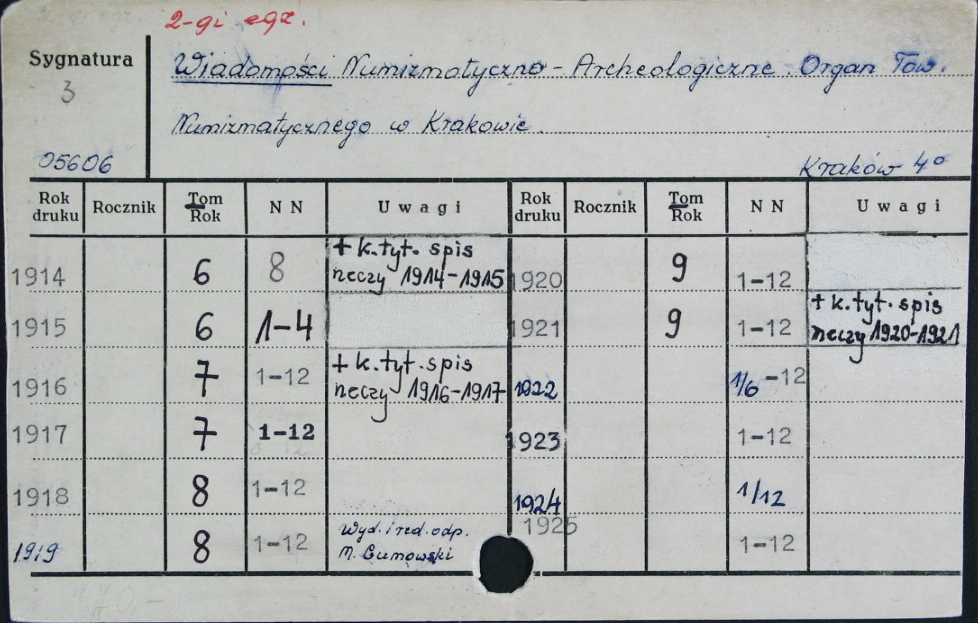 2-gi egz.
Sygnatura
3
05606
Wiadomości Numizmatyczno-Archeologiczne. Organ Tow.
Numizmatycznego w Krakowie.
Kraków 4°
Rok druku Rocznik Tom Rok N N Uwagi Rok druku Rocznik Tom Rok N N Uwagi
1914 6 8 + k.tyt. spis rzeczy 1914-1915 1920 9 1-12
1915 6 1-4 1921 9 1-12 + k.tyt. spis rzeczy 1920-1921
1916 7 1-12 + k.tyt. spis rzeczy 1916-1917 1922 1/6-12
1917 7 1-12 1923 1-12
1918 8 1-12 1924 1/12
1919 8 1-12 Wyd. i red. odp. M. Gumowski 1925 1-12